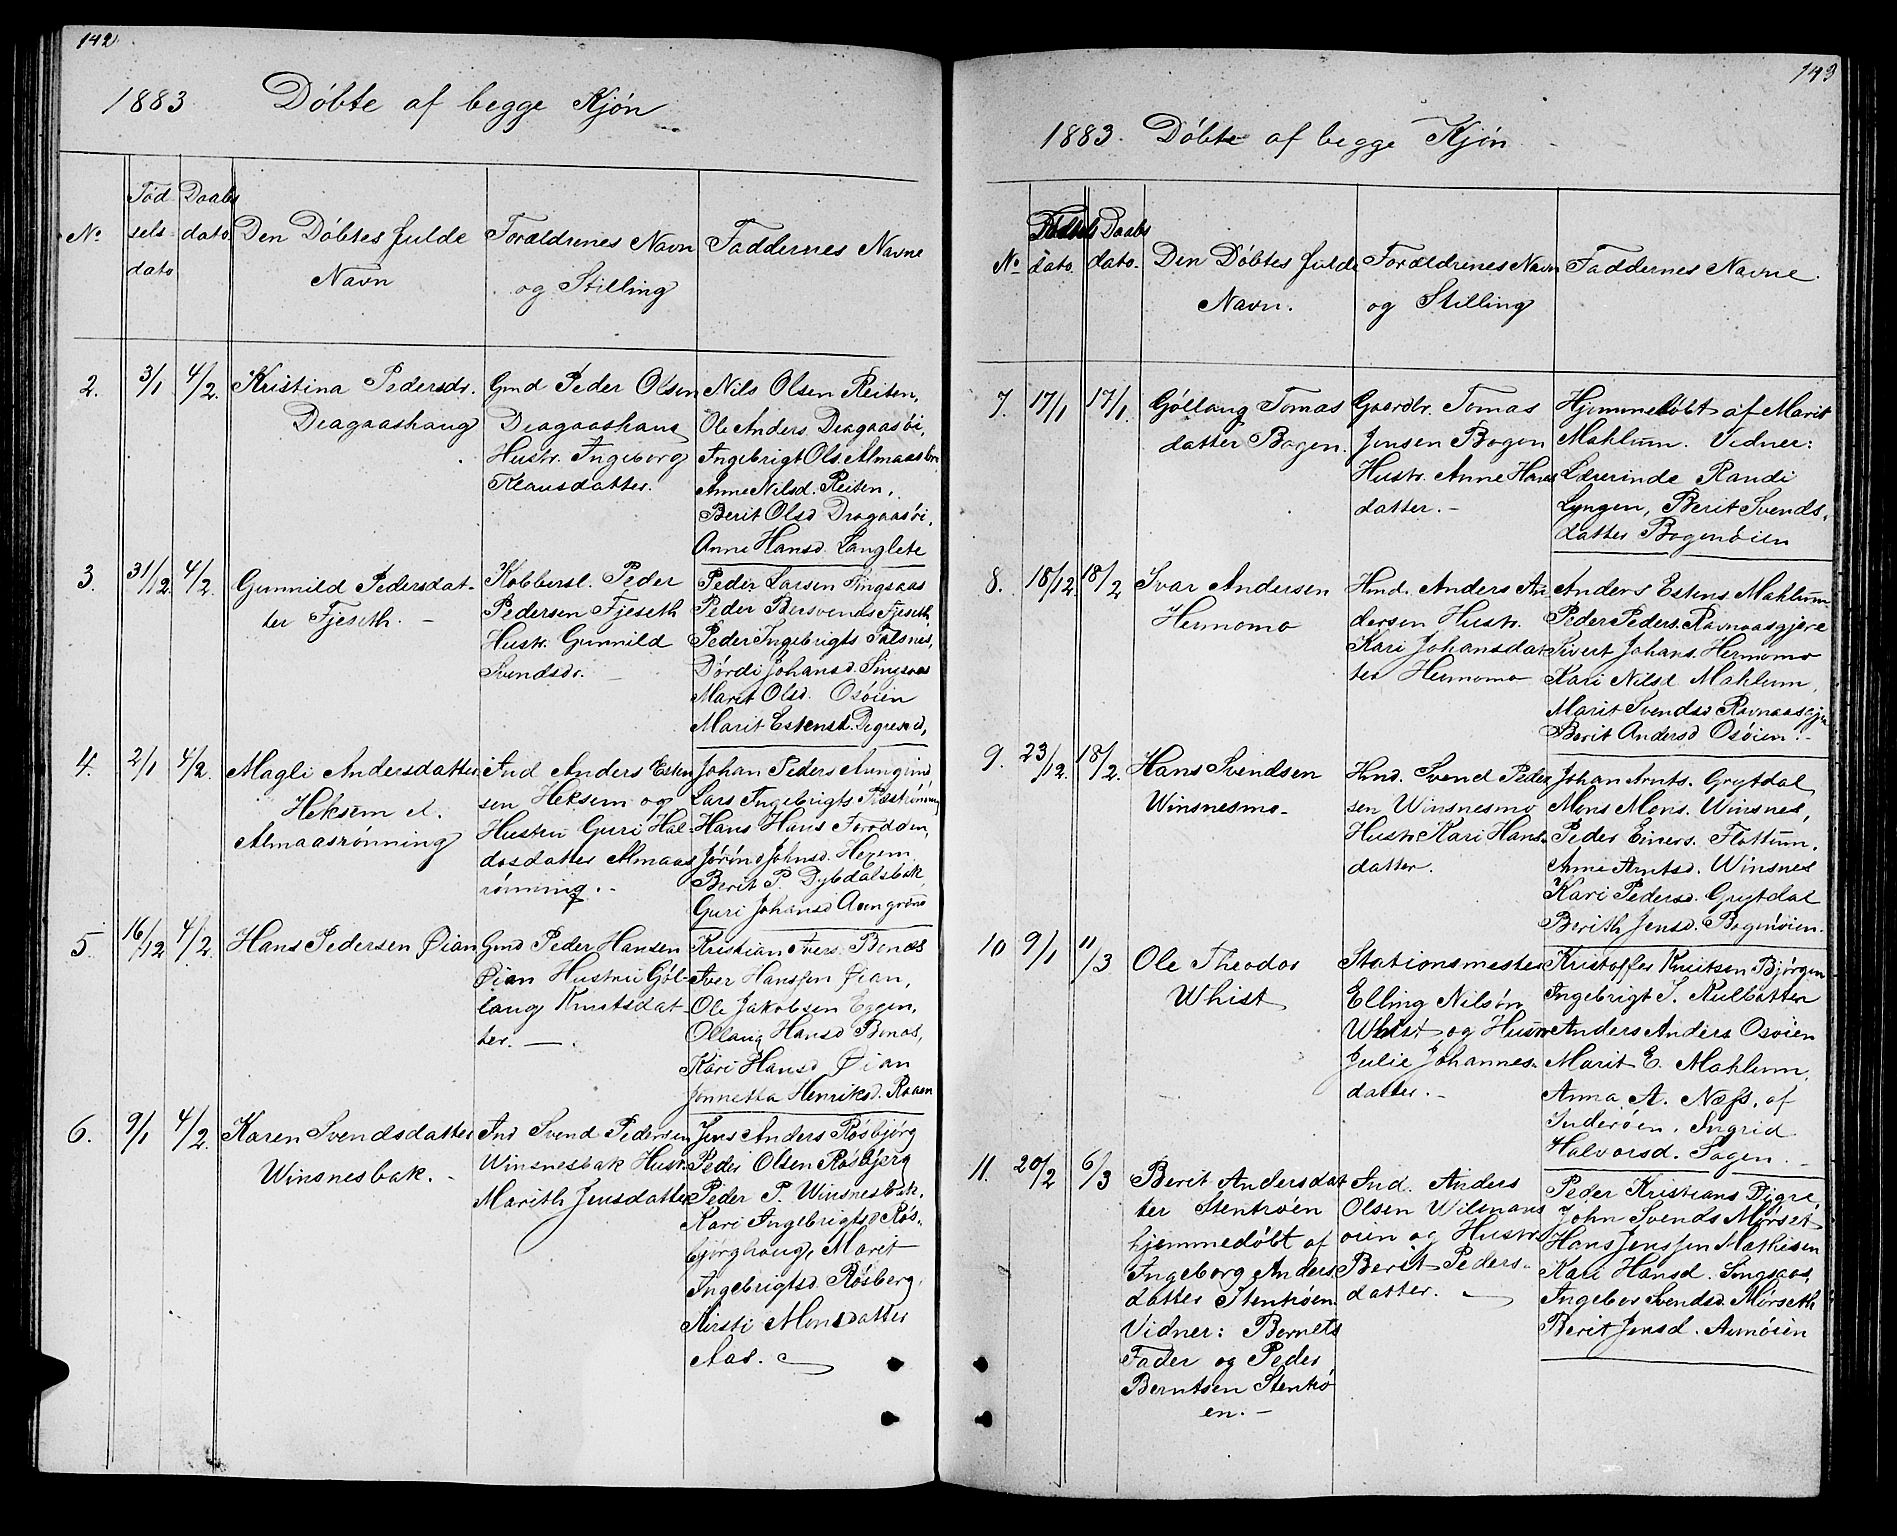 142
1883 Döbte af begge Kjön
No
Fød
sels
dato
Daabs
dato
Den Döbtes fulde
Navn
Forældrenes Navn
og Stilling
Faddernes Navne
2.
3/1
4/2.
Kristina Pedersdr.
Dragaashaug
Gmd Peder Olsen
Dragaashaug
Hustr. Ingeborg
Klausdatter.
Nils Olsen Reiten,
Ole Anders. Dragaasöi,
Ingebrigt Ols. Almaas
Anne Nilsd. Reiten,
Berit Olsd Dragaasöi,
Anne Hansd. Langlete
3.
31/12
4/2.
Gunnild Pedersdat-
ter Fjeseth. -
Kobbersl. Peder
Pedersen Fjeseth
Hustr. Gunnild
Svendsdr.
Peder Larsen Singsaas
Peder Bersvends Fjeseth,
Peder Ingebrigts Talsnes,
Dördi Johansd. Singsaas
Marit Olsd. Osöien
Marit Estensd.
4.
2/1
4/2.
Magli Andersdatter
Heksem el.
Almaasrönning
Ind Anders Esten
sen Heksem og
Hustru Guri Hal-
dosdatter Almaas
rönning. -
Johan Peders Aungrind
Lars Ingebrigts
Hans Hans Forodden,
Jörön Johnsd. Hexem
Berit P. Dybdalsbak
Guri Johansd Aungrind
5.
16/12
4/2.
Hans Pedersen Øian
Gmd Peder Hansen
Øian Hustru Göl-
laug Knutsdat-
ter. -
Kristian Ivers. Bonæs
Iver Hanssen Øian,
Ole Jakobsen Eggen,
Ollaug Hansd Bonæs,
Kari Hansd Øian
Jonnetta Henriksd. Raaen
6.
9/1
4/2
Karen Svendsdatter
Winsnesbak. -
Ind Svend Pedersen
Winsnesbak Hustr.
Marith Jensdatter
Jens Anders Rösbjörg
Peder Olsen Rösbjörg
Peder P. Winsnesbak,
Kari Ingebrigtsd Rös-
björghaug, Marit
Ingebrigtsd. Rösberg,
Kirsti Monsdatter
Aas.
143
1883. Döbte af begge Kjön
No
dato.
Daabs
dato.
Den Döbtes fulde
Navn.
Forældrenes Navn
og Stilling
Faddernes Navne
7.
17/1
17/1.
Göllaug Tomas
datter Bogen.
Gaardbr. Tomas
Jensen Bogen
Hustr. Anne Hans
datter. -
Hjemmedöbt af Marit
Mahlum. Vidner:
Lærerinde Randi
Lyngen, Berit Svends-
datter Bogenöien
8.
18/12
18/2
Ivar Andersen
Hermomo
Hmd. Anders An
dersen Hustr.
Kari Johansdat
ter Hermomo
Anders Estens Mahlum
Peder Peders. Ravnaasgjere
Sivert Johans. Hermomo
Kari Nilsd. Mahlum,
Marit Svendsd Ravnaasgjere
Berit Andersd Osöien. -
9.
23/12.
18/2.
Hans Svendsen
Winsnesmo.
Hmd. Svend Peder
sen Winsnesmo
Hustr. Kari Hans-
datter.
Johan Arnts. Grytdal
Mons Mons. Winsnes,
Peder Einers. Flottum.
Anne Arntsd. Winsnes
Kari Pedersd. Grytdal
Berith Jensd. Bogenöien.
10
9/1
11/3
Ole Theodor
Whist
Stationsmester
Elling Nilsön
Whist og Hustr
Julie Johannes-
datter. -
Kristoffer Knutsen Bjørgen
Ingebrigt S. Kulbatten
Anders Anders Osöien
Marit E. Mahlum,
Anna A. Næss, af
Inderöen, Ingrid
Halvorsd. Sagen. -
11.
20/2
6/3
Berit Andersdat
ter Stenröen
hjemmedöbt af
Ingeborg Anders
datter Stenröen.
Vidner: Barnets
Fader og Peder
Berntsen Stenrö
en. -
Ind. Anders
Olsen Wilmans
öien og Hustr.
Berit Peders-
datter.
Peder Kristians Digre
John Svends Mörset
Hans Jenssen Mathisen
Kari Hansd. Singsaas,
Ingebor Svendsd. Mörseth
Berit Jensd. Aunöien